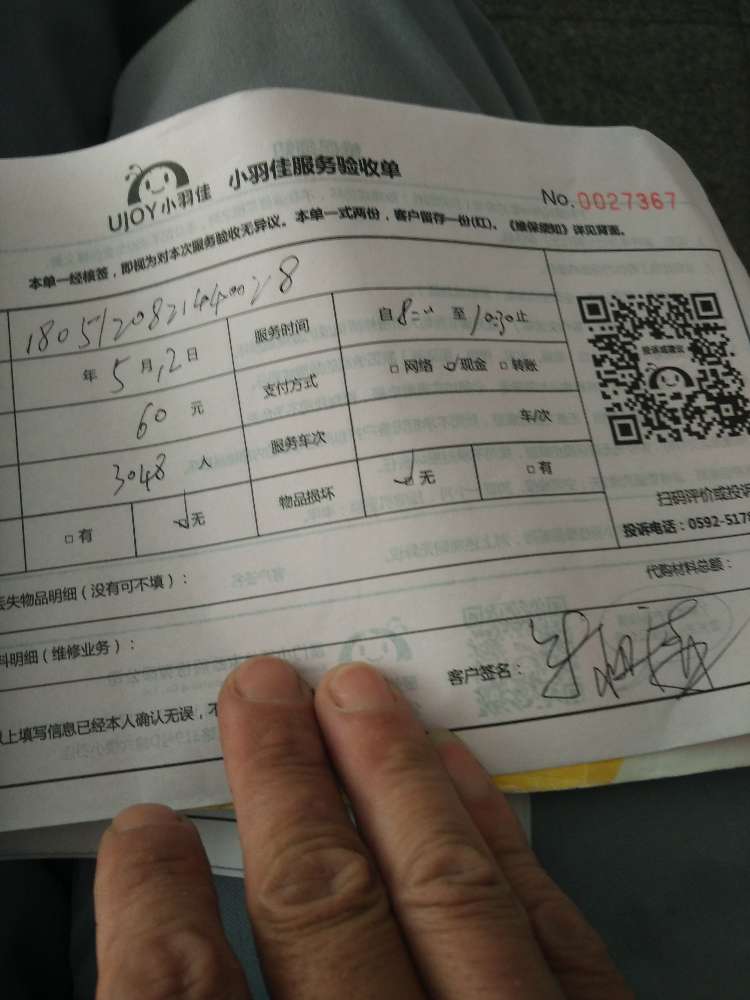 UJOY小羽佳 小羽佳服务验收单
No.0027367
本单一经核签，即视为对本次服务验收无异议。本单一式两份，客户留存一份(红)。《维保须知》详见背面。
服务时间 自8:00至10:30止
年5月12日 支付方式 □网络 ☑现金 □转账
60元 服务车次 车/次
3048人 物品损坏 ☑无 □有
□有 ☑无
投诉或建议
扫码评价或投诉
投诉电话：0592-517
丢失物品明细（没有可不填）：
代购材料总额：
料明细（维修业务）：
以上填写信息已经本人确认无误，不
客户签名：